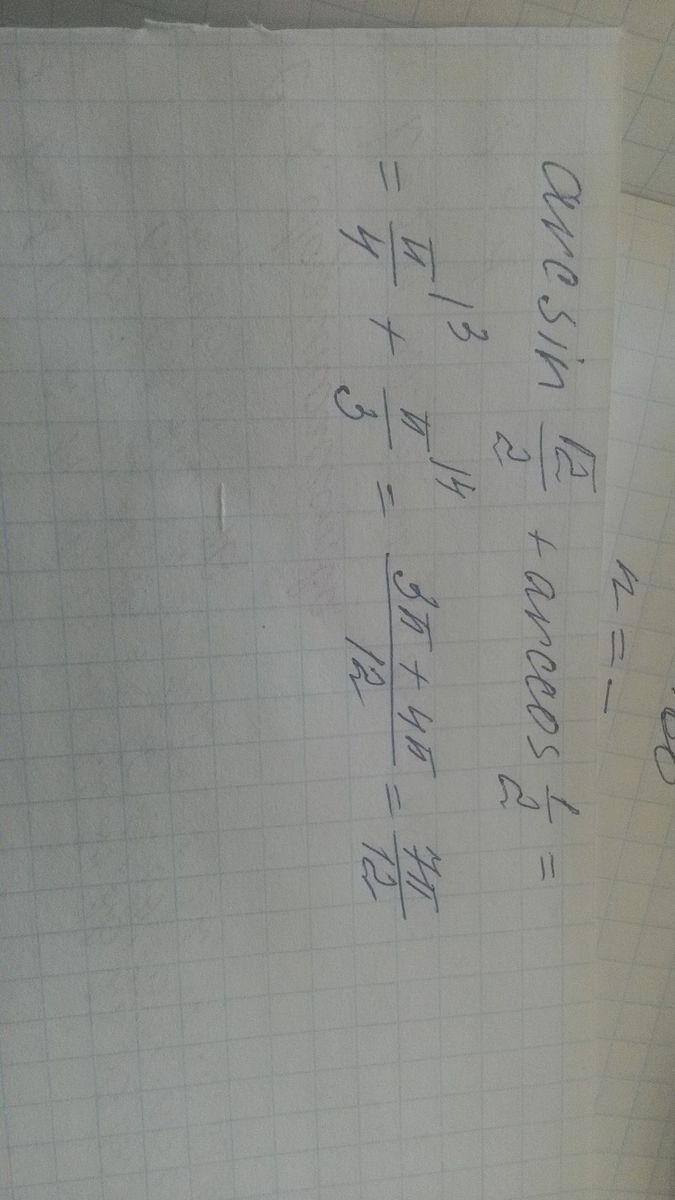 n = -
arcsin √2/2 + arccos 1/2 =
= π/4 |3 + π/3 |4 = 3π + 4π/12 = 7π/12